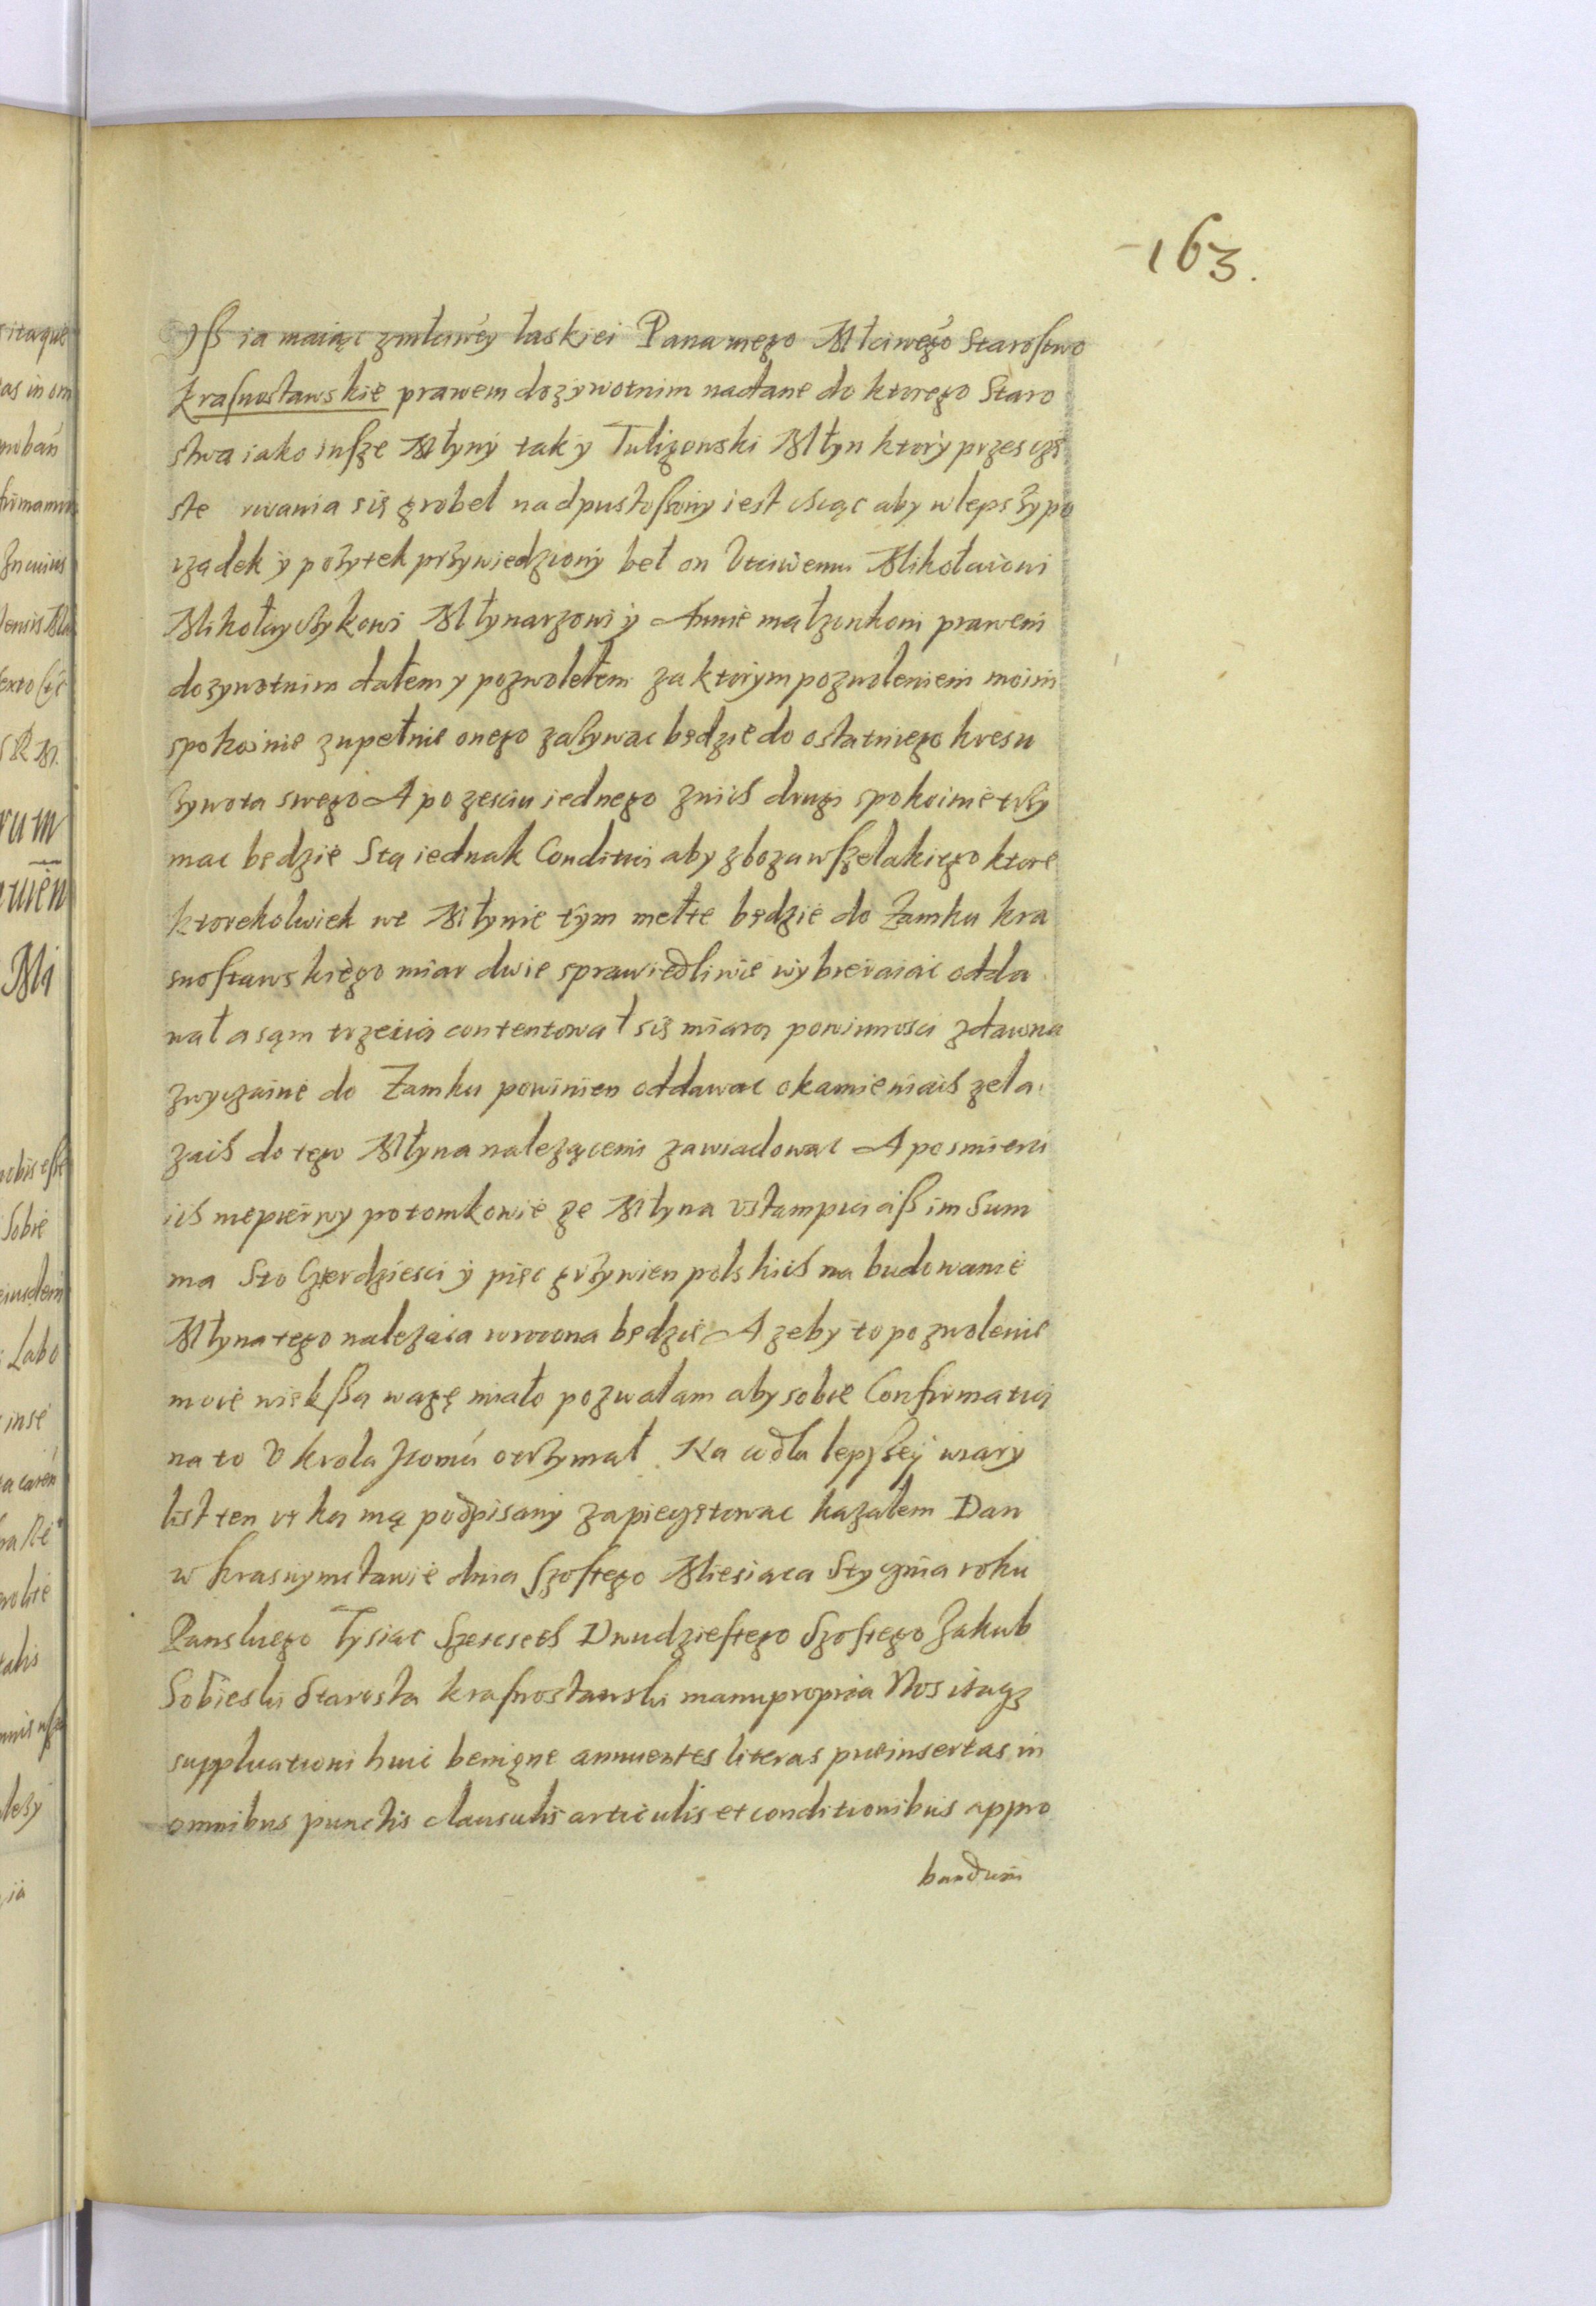 163.
Iß ia maiąc zmłciwéy łaskiei Pana mego Młciwégo Starostwo
krasnostawskie prawem dozywotnim nadane do ktorego Staro
stwa iako insze Młyny tak y Tulizowski Młyn ktory przes czę
ste rwania się grobel nadpustoszony iest chcąc aby w lepszy po
rządek y pożytek przywiedziony beł on Vtciwemu Mikołaiowi
Mikołayczykowi Młynarzowi y Annie małzonkoni prawem
dozywotnim dałem y pozwolełem za ktorym pozwoleniem moim
spokoinie zupełnie onego zażywac będzie do ostatniego kresu
żywota swego A po zesciu iednego znich drugi spokoinie trży
mac będzie Stą iednak Conditią aby zboza wszelakiego ktore
ktorekolwiek we Młynie tym mełte będzie do Zamku kra
snostawskiego miar dwie sprawiedliwie wybieraiac odda
wał a sąm trzecią contentował się miarą powinnosci zdawna
zwyczaine do Zamku powinien oddawac o kamieniach zela
zach do tego Młyna nalezącemi zawiadowac A po smierci
ich niepierwy potomkowie ze Młyna vstąmpią aß im Sum
ma Sto Czterdziesci y pięc grżywien polskich na budowanie
Młyna tego nalezaca wrocona będzie A zeby to pozwolenie
moie większą wagę miało pozwalam aby sobie Confirmatią
na to V krola Jeomú otrżymał. Na co dla lepszey wiary
list ten ręką mą podpisany zapieczętowac kazałem Dan
w krasnymstawie dnia szostego Miesiaca Stycznia roku
Panskiego Tysiac Szescseth Dwudziestego Szostego Jakub
Sobieski Starosta krasnostawski manu propria Nos itaqz
supplicationi huic benigne annuentes literas preinsertas in
omnibus punctis clausulis articulis et conditionibus appro
bandum